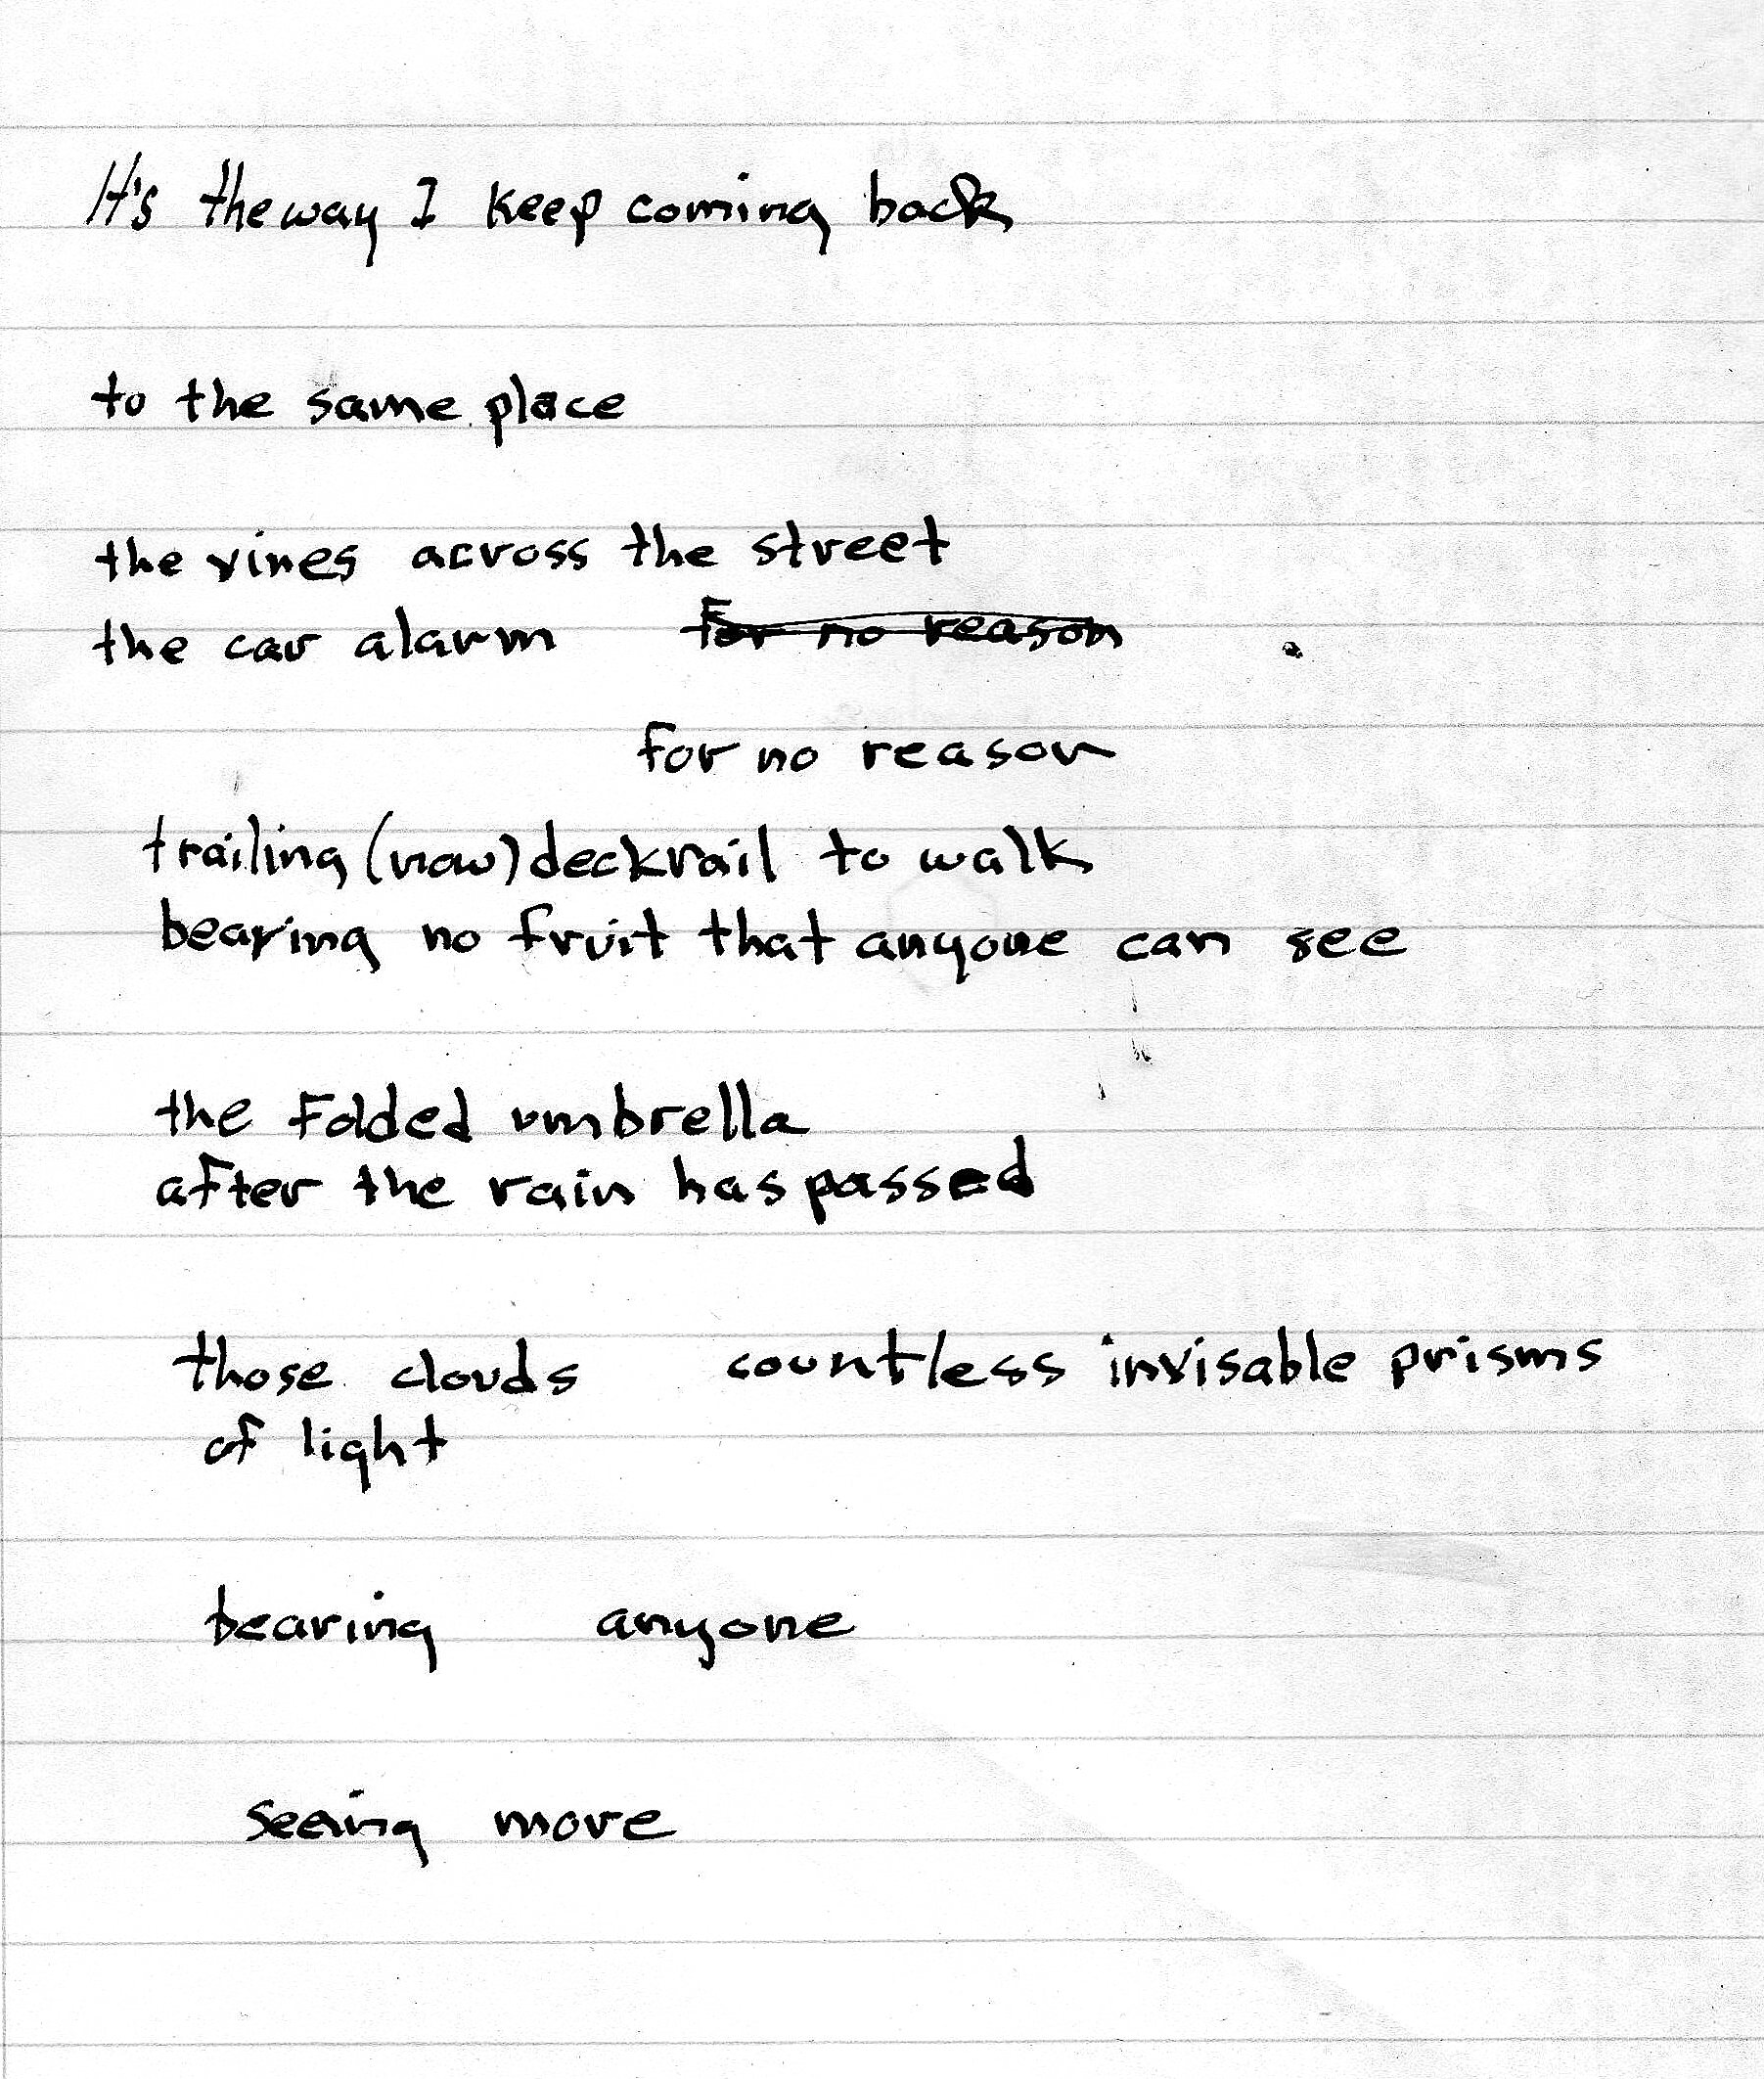 It's the way I keep coming back
to the same place
the vines across the street
the car alarm for no reason
for no reason
trailing (now) deckrail to walk
bearing no fruit that anyone can see
the folded umbrella
after the rain has passed
those clouds countless invisable prisms
of light
bearing anyone
seeing more